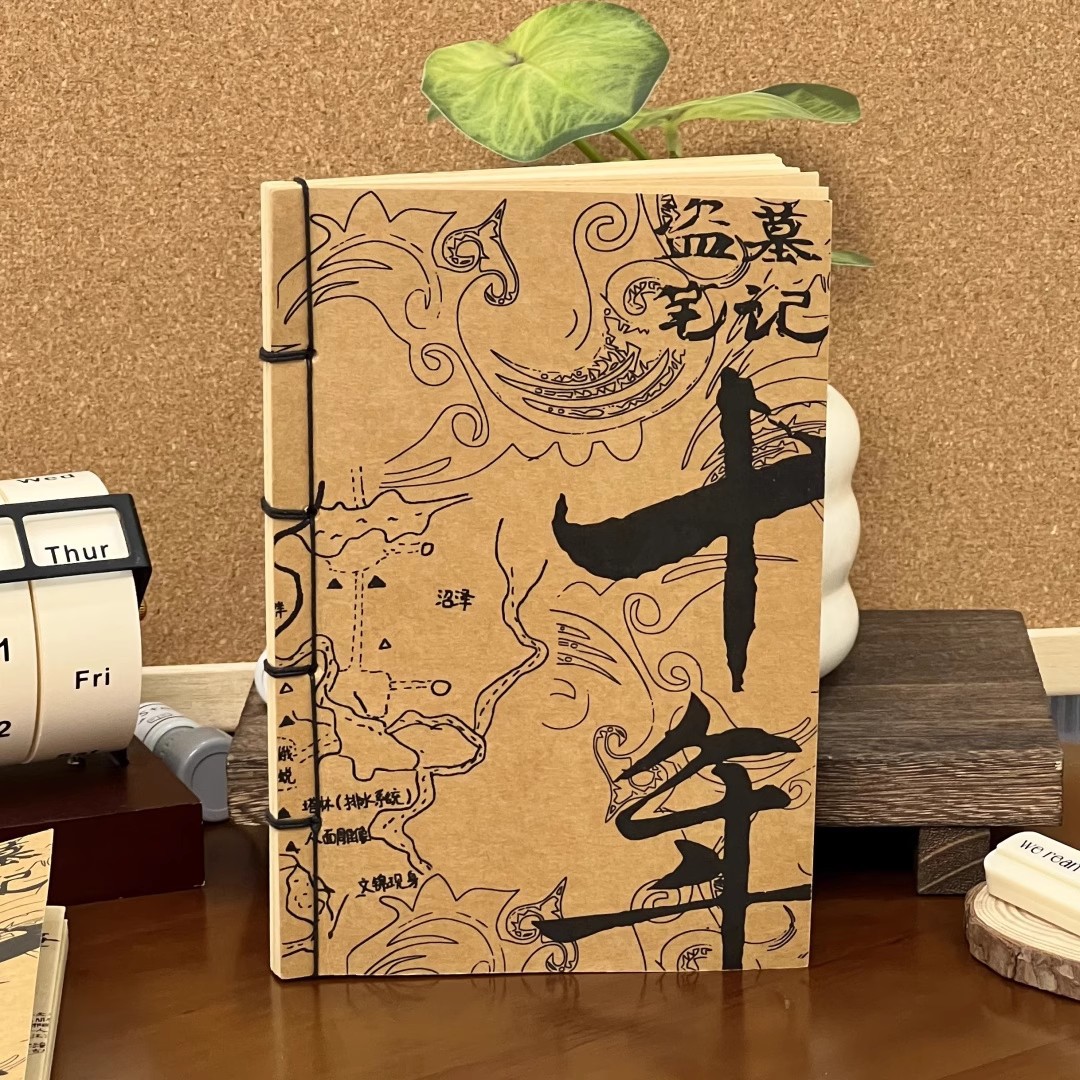 盗墓
笔记
十
年
沼泽
塔林(排水系统)
人面雕围
文锦现身
Wed
Thur
Fri
1
2
we rean